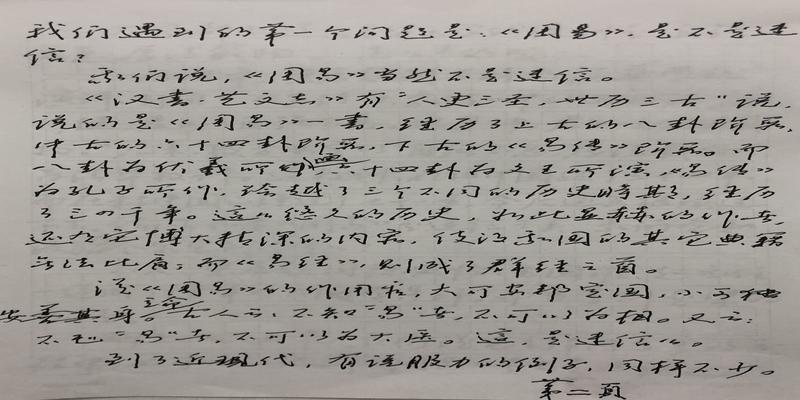 我们遇到的第一个问题是:《周易》,是不是迷
信?
我们说,《周易》当然不是迷信。
《汉书·艺文志》有"人更三圣,世历三古"说,
说的是《周易》一书,经历了上古的八卦阶段,
中古的六十四卦阶段,下古的《易经》阶段。而
八卦为伏羲所画,六十四卦为文王所演,《易经》
为孔子所作,跨越了三个不同的历史时期,经历
了三四千年。這么悠久的历史,如此显赫的作者,
还有它博大精深的内容,使沿我国的其它典籍
无法比肩;而《易经》,则成了群经之首。
说《周易》的作用和,大可安邦定国,小可独
善其身。古人云:不知"易"者,不可以为相。又云:
不知"易"者,不可以为大医。這,是迷信么。
到了近现代,有说服力的例子,同样不少。
第二頁